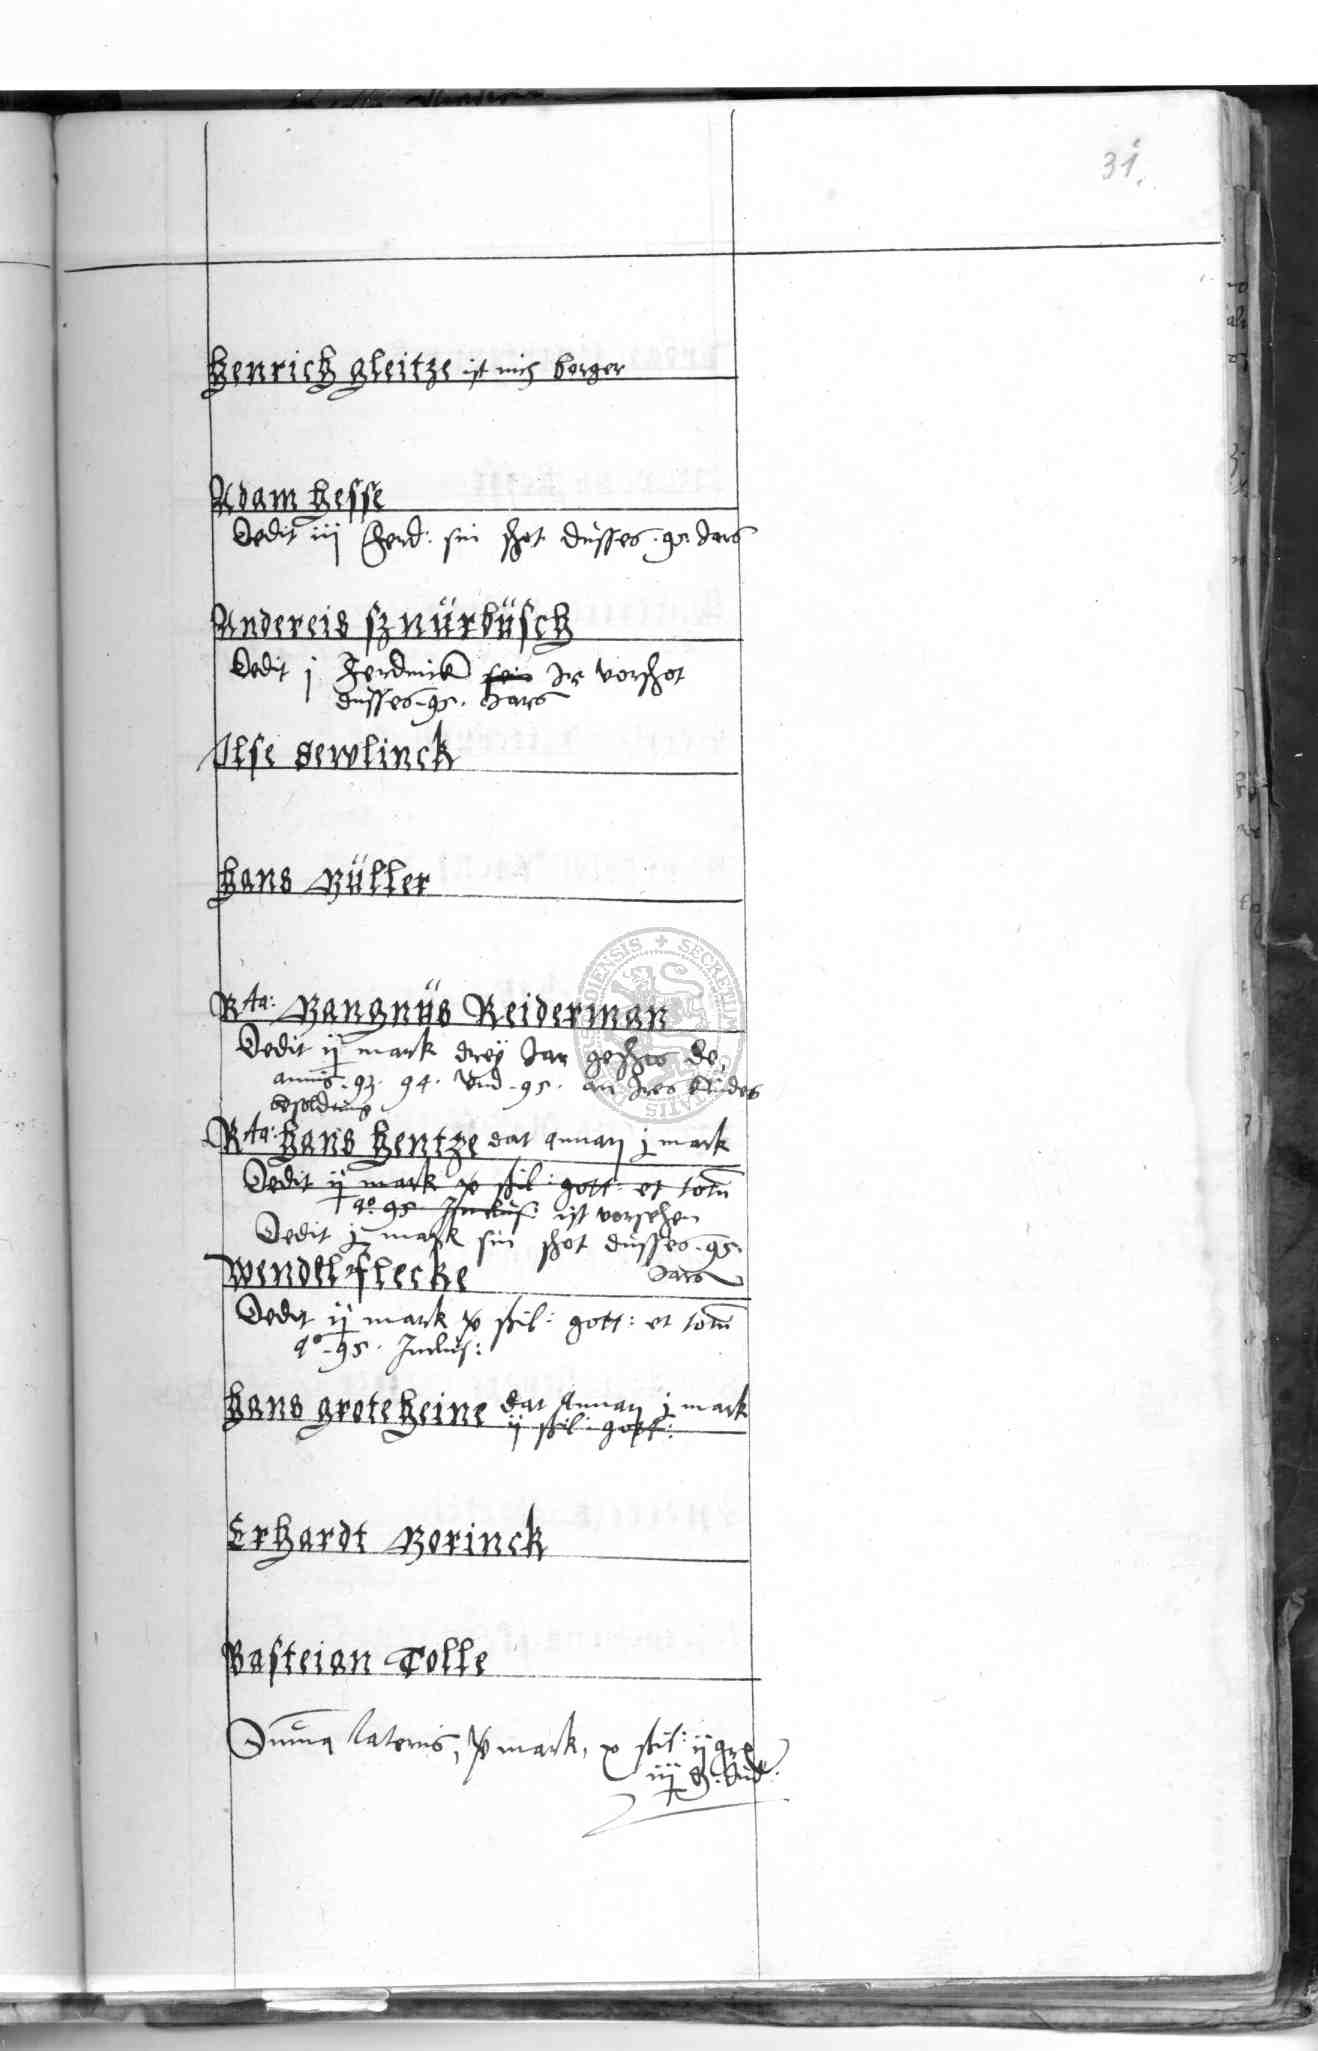 31.
Henrich gleitze ist nich borger
Adam Hesse
Dedit iij ferd: sin schot dusses .95. Jars
Andereis sznürbüsch
Dedit j ferdinck sein Jr vorschot
dusses .95. Jars
Ilse Sewlinck
Hans Müller
Rta: Mangnüs Reiderman
Dedit ij mark drey Jar geschos de
annis .93. 94. vnd .95. an Ires Kindes
besoldung
Rta: Hans Hentze dat annati j mark
Dedit ij mark x schil: gott: et totum
ao 95 Inclus: ist vorsehen
Dedit j mark sin schot dusses .95.
Jars
Wendel flecke
Dedit ij mark x schil: gott: et totum
ao .95. Inclus:
Hans groteheine dat Annati j mark
ij schil: gott:
Erhardt Morinck
Basteian Tolle
Summa lateris, mark, x schil: ij gr